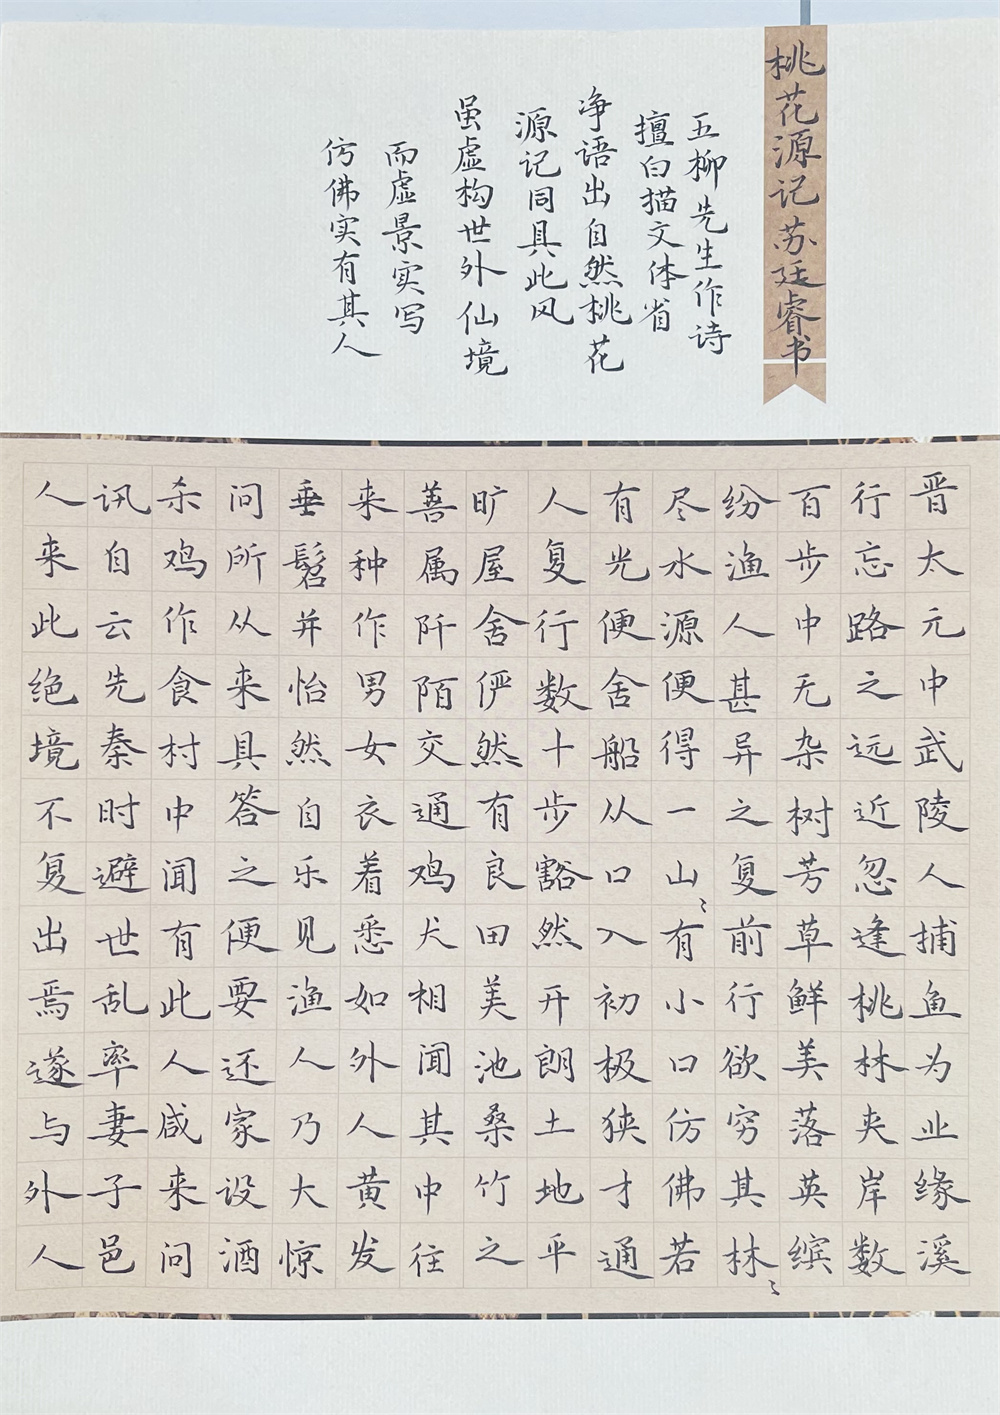 桃花源记苏廷睿书
五柳先生作诗
擅白描文体省
净语出自然桃花
源记同具此风
虽虚构世外仙境
而虚景实写
仿佛实有其人
晋太元中武陵人捕鱼为业缘溪
行忘路之远近忽逢桃林夹岸数
百步中无杂树芳草鲜美落英缤
纷渔人甚异之复前行欲穷其林〻
尽水源便得一山〻有小口仿佛若
有光便舍船从口入初极狭才通
人复行数十步豁然开朗土地平
旷屋舍俨然有良田美池桑竹之
善属阡陌交通鸡犬相闻其中往
来种作男女衣着悉如外人黄发
垂髫并怡然自乐见渔人乃大惊
问所从来具答之便要还家设酒
杀鸡作食村中闻有此人咸来问
讯自云先秦时避世乱率妻子邑
人来此绝境不复出焉遂与外人